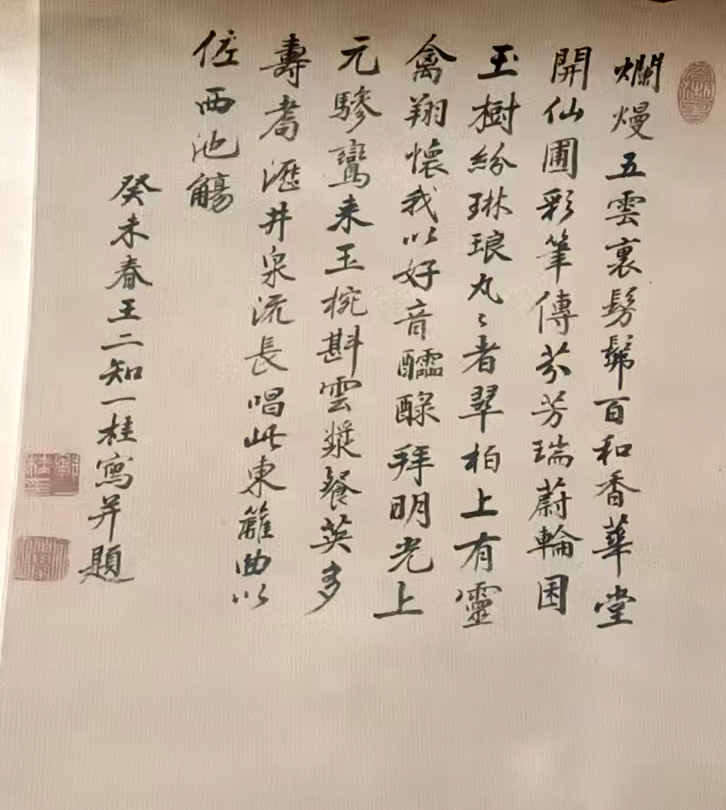 爛熳五雲裏髣髴百和香華堂
開仙圃彩筆傳芬芳瑞蔚輪囷
玉樹紛琳琅丸〻者翠柏上有靈
禽翔懷我以好音醽醁拜明光上
元驂鸞来玉椀斟雲漿餐英多
壽耉瀝井泉流長唱此東籬曲以
佐西池觴
癸未春王二知一桂寫并題